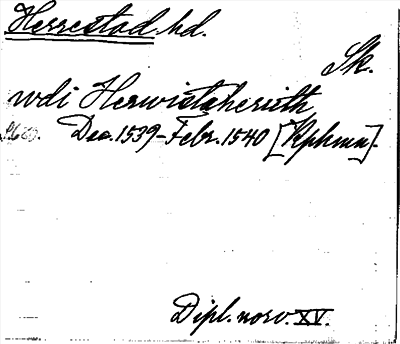 Herrestad hd.
Sk.
wdi Herwistzheriith
Dec. 1539-Febr. 1540 [Kphmn].
Dipl. norv. XV.